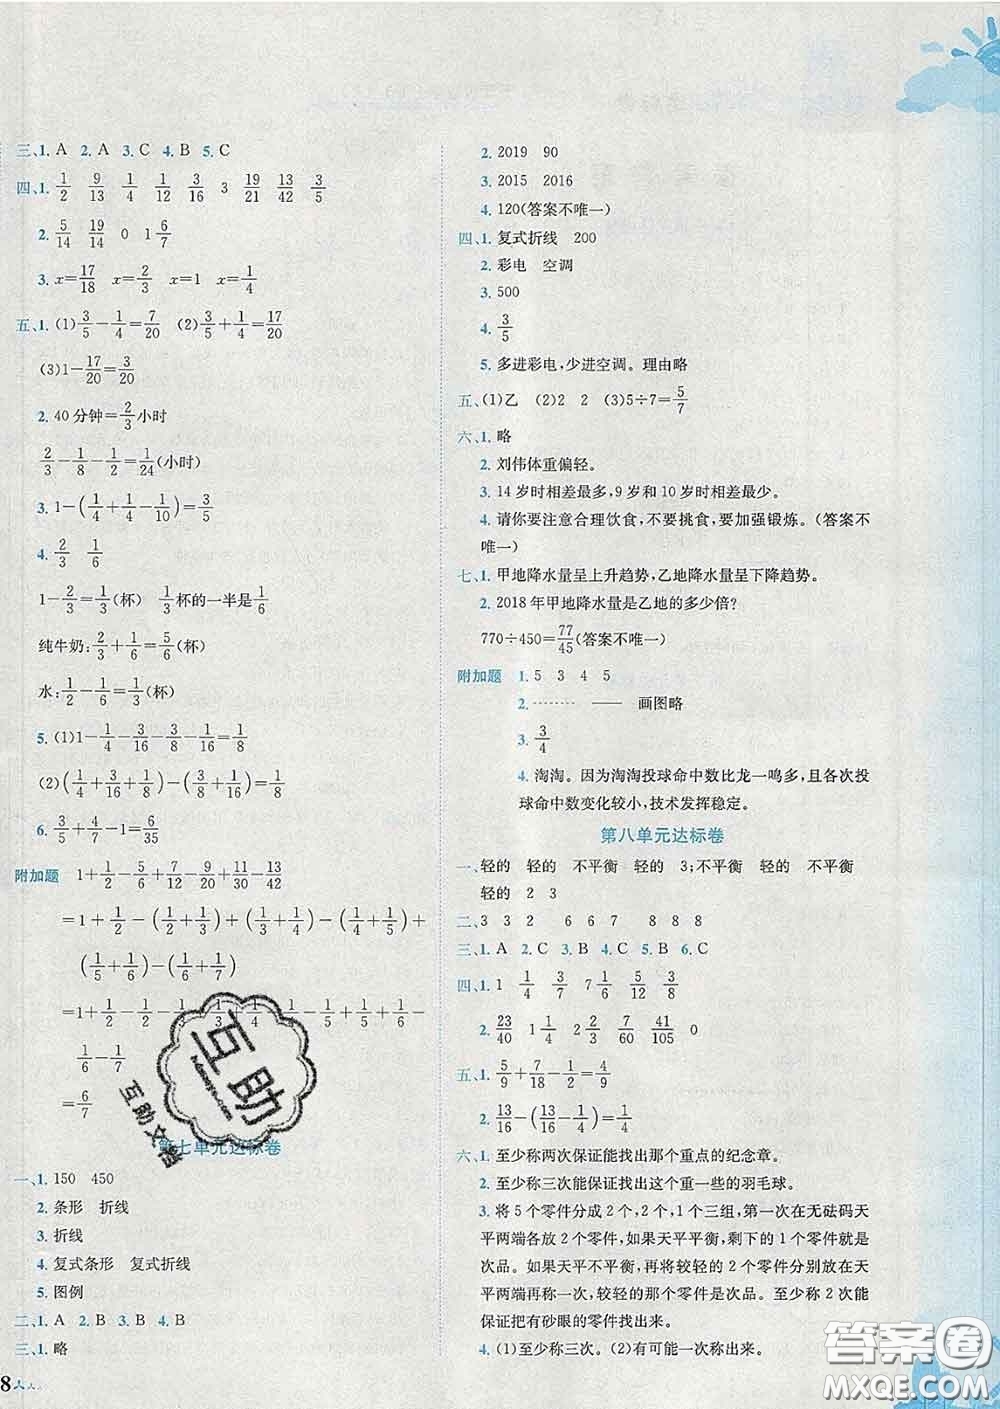 三、1. A 2. A 3. C 4. B 5. C
四、1. 1/2 9/13 1/4 1/12 3/16 3 19/21 13/42 3/5
2. 5/14 19/14 0 1 6/7
3. x=17/18 x=2/3 x=1 x=1/4
五、1. (1)3/5-1/4=7/20 (2)3/5+1/4=17/20
(3)1-17/20=3/20
2. 40分钟=2/3小时
2/3-1/8-1/2=1/24(小时)
3. 1-(1/4+1/4-1/10)=3/5
4. 2/3 1/6
1-2/3=1/3(杯) 1/3杯的一半是1/6
纯牛奶:2/3+1/6=5/6(杯)
水:1/2-1/6=1/3(杯)
5. (1)1-1/4-3/16-3/8-1/16=1/8
(2)(1/4+3/16+3/8)-(3/8+3/16)=1/4
6. 3/5+4/7-1=6/35
附加题 1+1/2-5/6+7/12-9/20+11/30-13/42
=1+1/2-(1/2+1/3)+(1/3+1/4)-(1/4+1/5)+
(1/5+1/6)-(1/6+1/7)
=1+1/2-1/2-1/3+1/3+1/4-1/4-1/5+1/5+1/6-
1/6-1/7
=6/7
第七单元达标卷
一、1. 150 450
2. 条形 折线
3. 折线
4. 复式条形 复式折线
5. 图例
二、1. A 2. B 3. B 4. B
三、1. 略
8
2. 2019 90
3. 2015 2016
4. 120(答案不唯一)
四、1. 复式折线 200
2. 彩电 空调
3. 500
4. 3/5
5. 多进彩电,少进空调。理由略
五、(1)乙 (2)2 2 (3)5÷7=5/7
六、1. 略
2. 刘伟体重偏轻。
3. 14岁时相差最多,9岁和10岁时相差最少。
4. 请你要注意合理饮食,不要挑食,要加强锻炼。(答案不
唯一)
七、1. 甲地降水量呈上升趋势,乙地降水量呈下降趋势。
2. 2018年甲地降水量是乙地的多少倍?
770÷450=77/45(答案不唯一)
附加题 1. 5 3 4 5
2. -------- —— 画图略
3. 3/4
4. 淘淘。因为淘淘投球命中数比龙一鸣多,且各次投
球命中数变化较小,技术发挥稳定。
第八单元达标卷
一、轻的 轻的 不平衡 轻的 3;不平衡 轻的 不平衡
轻的 2 3
二、3 3 2 6 6 7 8 8 8
三、1. A 2. C 3. B 4. C 5. B 6. C
四、1. 1 1/4 3/7 7 1/5 5/12 3/8
2. 23/40 1 1/4 2 2/3 7/60 41/105 0
五、1. 5/9+7/18-1/2=4/9
2. 13/16-(13/16-1/4)=1/4
六、1. 至少称两次保证能找出那个重点的纪念章。
2. 至少称三次能保证找出这个重一些的羽毛球。
3. 将5个零件分成2个,2个,1个三组,第一次在无砝码天
平两端各放2个零件,如果天平平衡,剩下的1个零件就是
次品。如果天平不平衡,再将较轻的2个零件分别放在天
平两端再称一次,较轻的那个零件就是次品。至少称2次能
保证把有砂眼的零件找出来。
4. (1)至少称三次。(2)有可能一次称出来。
互助
互助文档
答案圈
MXQE.COM